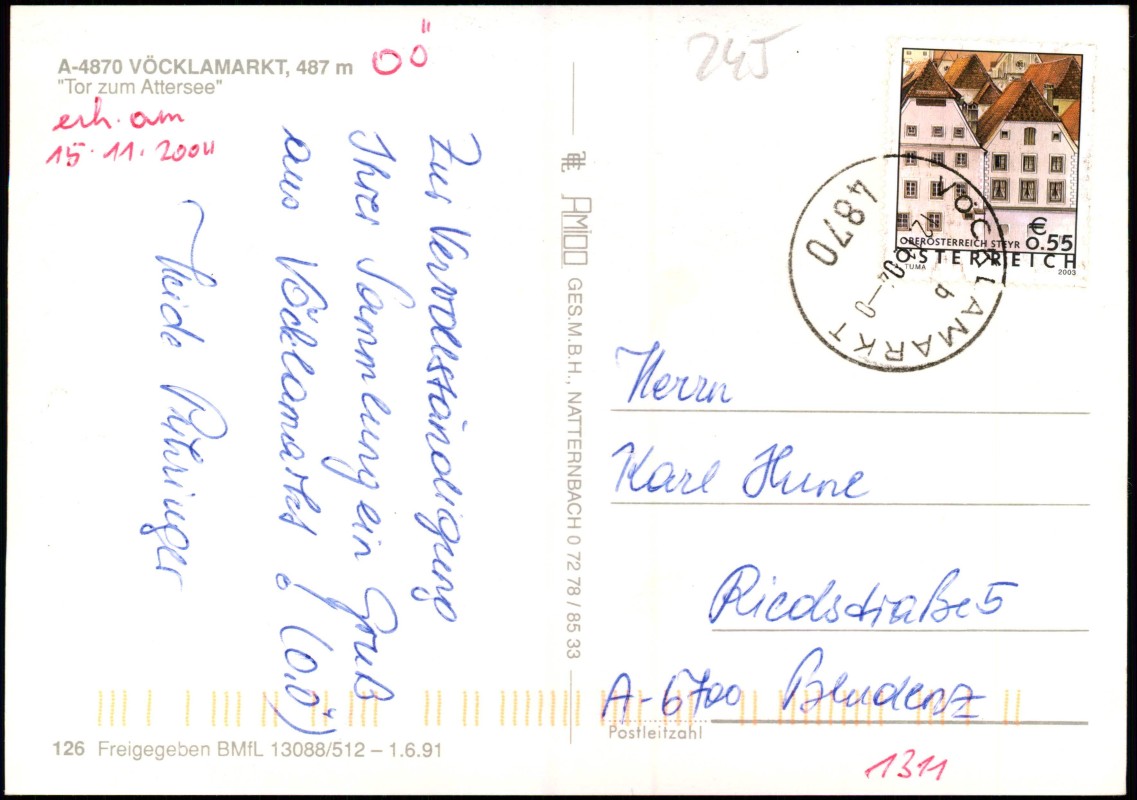 A-4870 VÖCKLAMARKT, 487 m
"Tor zum Attersee"
OÖ
erh. am
15.11.2004
Zur Vervollständigung
Ihrer Sammlung ein Gruß
aus Vöcklamarkt! (O.Ö)
Heide Pühringer
126 Freigegeben BMfL 13088/512 – 1.6.91
AMIOO GES.M.B.H., NATTERNBACH 0 72 78 / 85 33
245
€
0.55
OBERÖSTERREICH STEYR
ÖSTERREICH
TUMA
2003
4870
VÖCKLAMARKT
b
Herrn
Karl Hune
Riedstraße 5
A-6700 Bludenz
Postleitzahl
1311